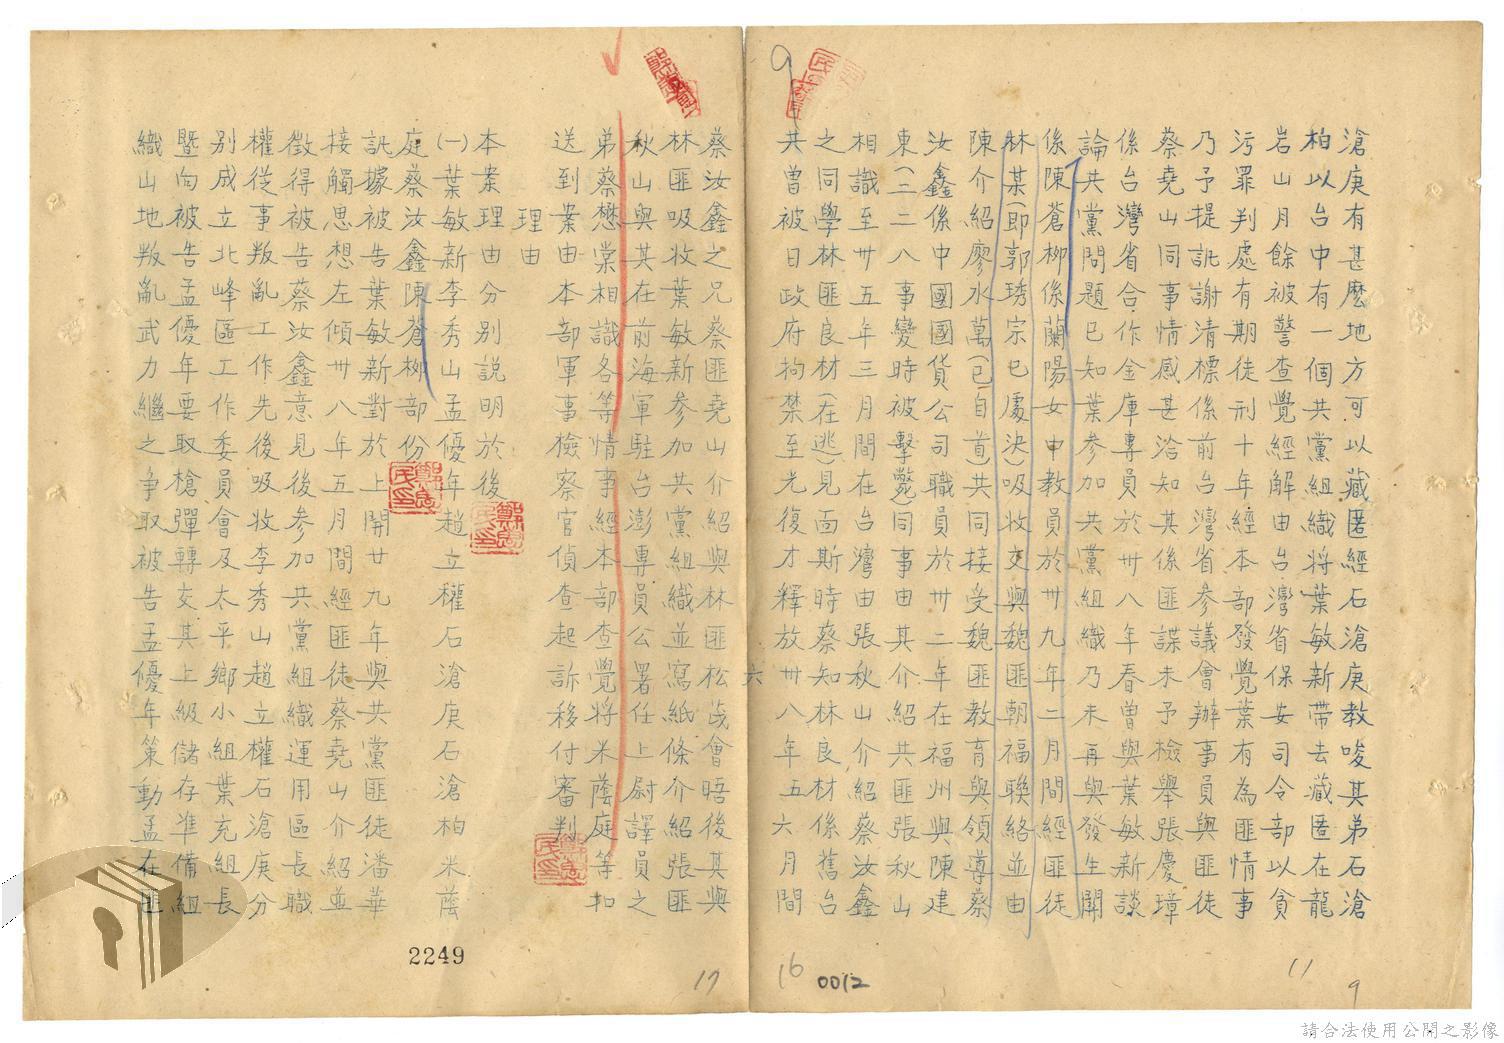 滄庚有甚麼地方可以藏匿經石滄庚教唆其弟石滄
柏以台中有一個共黨組織將葉敏新帶去藏匿在龍
岩山月餘被警查覺經解由台灣省保安司令部以貪
污罪判處有期徒刑十年經本部發覺葉有為匪情事
乃予提訊謝清標係前台灣省參議會辦事員與匪徒
蔡堯山同事情感甚洽知其係匪諜未予檢舉張慶璋
係台灣省合作金庫專員於卅八年春曾與葉敏新談
論共黨問題已知葉參加共黨組織乃未再與發生關
係陳蒼柳係蘭陽女中教員於卅九年二月間經匪徒
林某(即郭琇宗已處決)吸收交與魏匪朝福聯絡並由
陳介紹廖水萬(已自首)共同接受魏匪教育與領導蔡
汝鑫係中國國貨公司職員於卅二年在福州與陳建
東(二二八事變時被擊斃)同事由其介紹共匪張秋山
相識至卅五年三月間在台灣由張秋山介紹蔡汝鑫
之同學林匪良材(在逃)見面斯時蔡知林良材係舊台
共曾被日政府拘禁至光復才釋放卅八年五六月間
六
蔡汝鑫之兄蔡匪堯山介紹與林匪松茂會晤後其與
林匪吸收葉敏新參加共黨組織並寫紙條介紹張匪
秋山與其在前海軍駐台澎專員公署任上尉譯員之
弟蔡懋棠相識各等情事經本部查覺將米蔭庭等扣
送到案由本部軍事檢察官偵查起訴移付審判
理由
本案理由分別說明於後
(一)葉敏新李秀山孟優年趙立權石滄庚石滄柏米蔭
庭蔡汝鑫陳蒼柳部份
訊據被告葉敏新對於上開廿九年與共黨匪徒潘華
接觸思想左傾卅八年五月間經匪徒蔡堯山介紹並
徵得被告蔡汝鑫意見後參加共黨組織運用區長職
權從事叛亂工作先後吸收李秀山趙立權石滄庚分
別成立北峰區工作委員會及太平鄉小組葉充組長
暨向被告孟優年要取槍彈轉交其上級儲存準備組
織山地叛亂武力繼之爭取被告孟優年策動孟在匪
9
2249
17
16
0012
11
9
請合法使用公開之影像